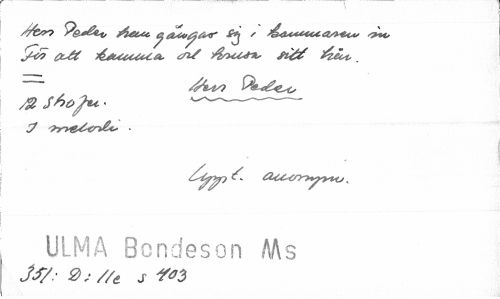 Herr Peder han gångar sig i kammaren in
För att kamma och krusa sitt hår.
Herr Peder
12 strofer.
1 melodi.
Uppt. anonym.
ULMA Bondeson Ms
351: D: 11e s 403